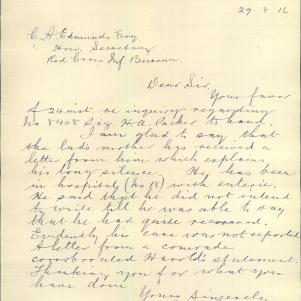 29.8.16
C A Edmunds Esq
Hon. Secretary
Red Cross Inf Bureau
Dear Sir,
Your favor
of 24 inst. re inquiry regarding
No 8408 H.A. Parker to hand.
I am glad to say that
the lad's mother has received a
letter from him which explains
his long silence. He has been
in hospital (No 18) with enteric.
He said that he did not intend
to write till he was able to say
that he had quite recovered.
Evidently his case was not reported.
A letter from a comrade
corroborated Harold's statement.
Thanking you for what you
have done
Yours Sincerely